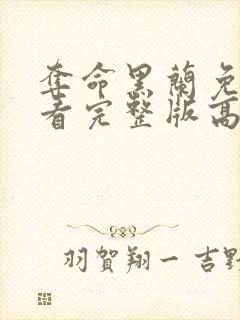 奪命黑蘭免
看完整版高
羽賀翔一 吉野